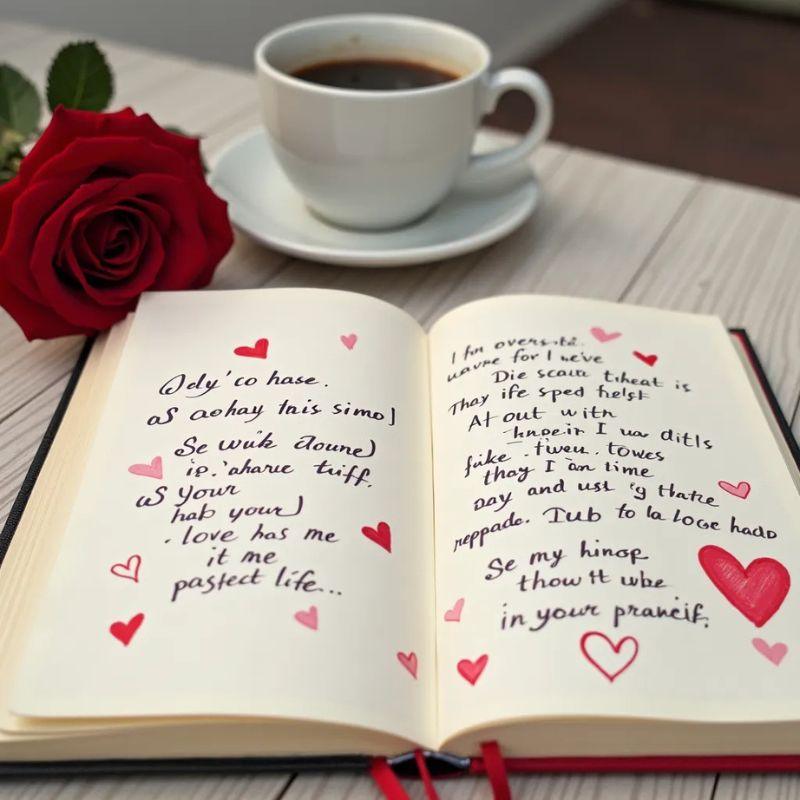 Ody'co hase.
aS aohay tais simo)
Se wuik doune)
ip.'aharue tuiff.
wS your
hab your)
. love has me
it me
pastect life...
I fm overs
uavre for I
Die scaut tiheat is
Thay ife sped helst
At out with
I uw ditls
fake . towes
thay I an time
day and ust 'g thate
reppade. Iub to la loce hado
Se my hinop
thow tt wbe
in your praneif.